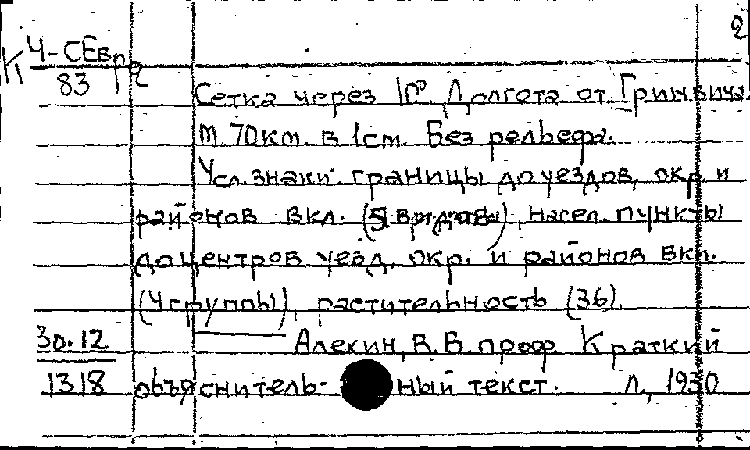 2
К Ч-СЕвр
83
Сетка через 1°. Долгота от Гринвича.
М. 70км. в 1см. Без рельефа.
Усл. знаки: границы до уездов, окр. и
районов вкл. (5 видов), насел. пункты
до центров уезд. окр. и районов вкл.
(4 группы), растительность (36).
30.12
Алехин, В.В. проф. Краткий
1318
объяснитель-ный текст. Л., 1930